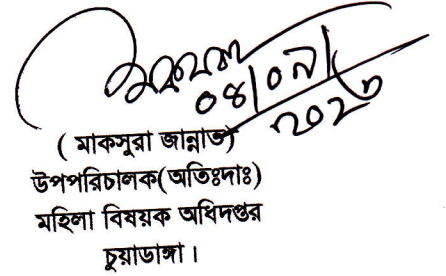 ০৪/০৭/
২০২৩
( মাকসুরা জান্নাত)
উপপরিচালক(অতিঃদাঃ)
মহিলা বিষয়ক অধিদপ্তর
চুয়াডাঙ্গা।